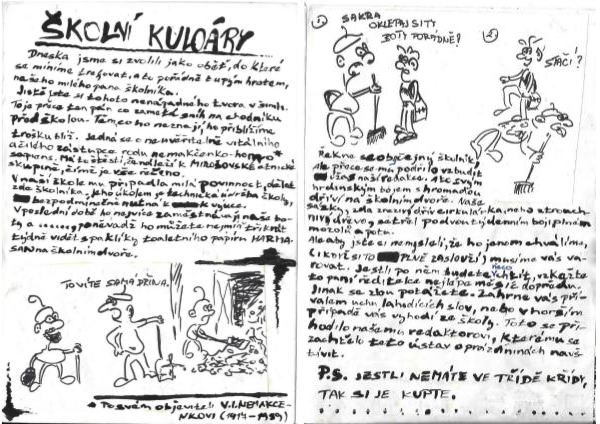 ŠKOLNÍ KULOÁRY
Dneska jsme si zvolili jako oběť, do které
se míníme trefovat, a to pořádně tupým hrotem,
našeho milého pana školníka.
Jistě jste si tohoto nenápadného tvora všimli.
To je přece ten pán co zametá sníh na chodníku
před školou. Těm, co ho neznají, ho přiblížíme
trošku blíž. Jedná se o neuvěřitelně vitálního
a čilého zástupce rodu nemakčenko-homo
sapiens. Má to štěstí, že náleží k MIROŠOVSKÉ etnické
skupině, čímž je vše řečeno.
V naší škole mu připadla milá povinnost, dělat
zde školníka, jehož úkolem je technická údržba školy,
bezpodmínečně nutná k výuce.
V poslední době ho nejvíce zaměstnávají naše bo-
ty a ........ poněvadž ho můžete nejmíň třikrát
týdně vidět s paklíky toaletního papíru HARMA-
SAN na školním dvoře.
TO VÍTE SAMÁ DŘINA.
* Po svém objeviteli V.I. NEMAKČE-
NKOVI (1914-1989)
1)
SAKRA
OKLEPAJ SI TY
BOTY POŘÁDNĚ?
2)
STAČÍ?
Řekne se obyčejný školník,
ale přece se mu podřilo vzbudit
úžas naší redakce. A to svým
hrdinským bojem s hromadou
dříví na školním dvoře. Naše
sázky zda zvítězí dříví
mozolů a potu.
Ale aby jste si nemysleli, že ho jenom chválíme,
(i když si to PLNĚ ZASLOUŽÍ) musíme vás va-
rovat. Jestli po něm budete něco chtít, vzkažte
to paní ředitelce nejlépe měsíc dopředu.
Jinak se zlou potážete. Zahrne vás pří-
valem uchu lahodících slov, nebo v horším
případě vás vyhodí ze školy. Toto se při-
hodilo našemu redaktorovi, kterému se
zachtělo toto ústav o prázdninách navš-
tívit.
P.S. JESTLI NEMÁTE VE TŘÍDĚ KŘÍDY,
TAK SI JE KUPTE.